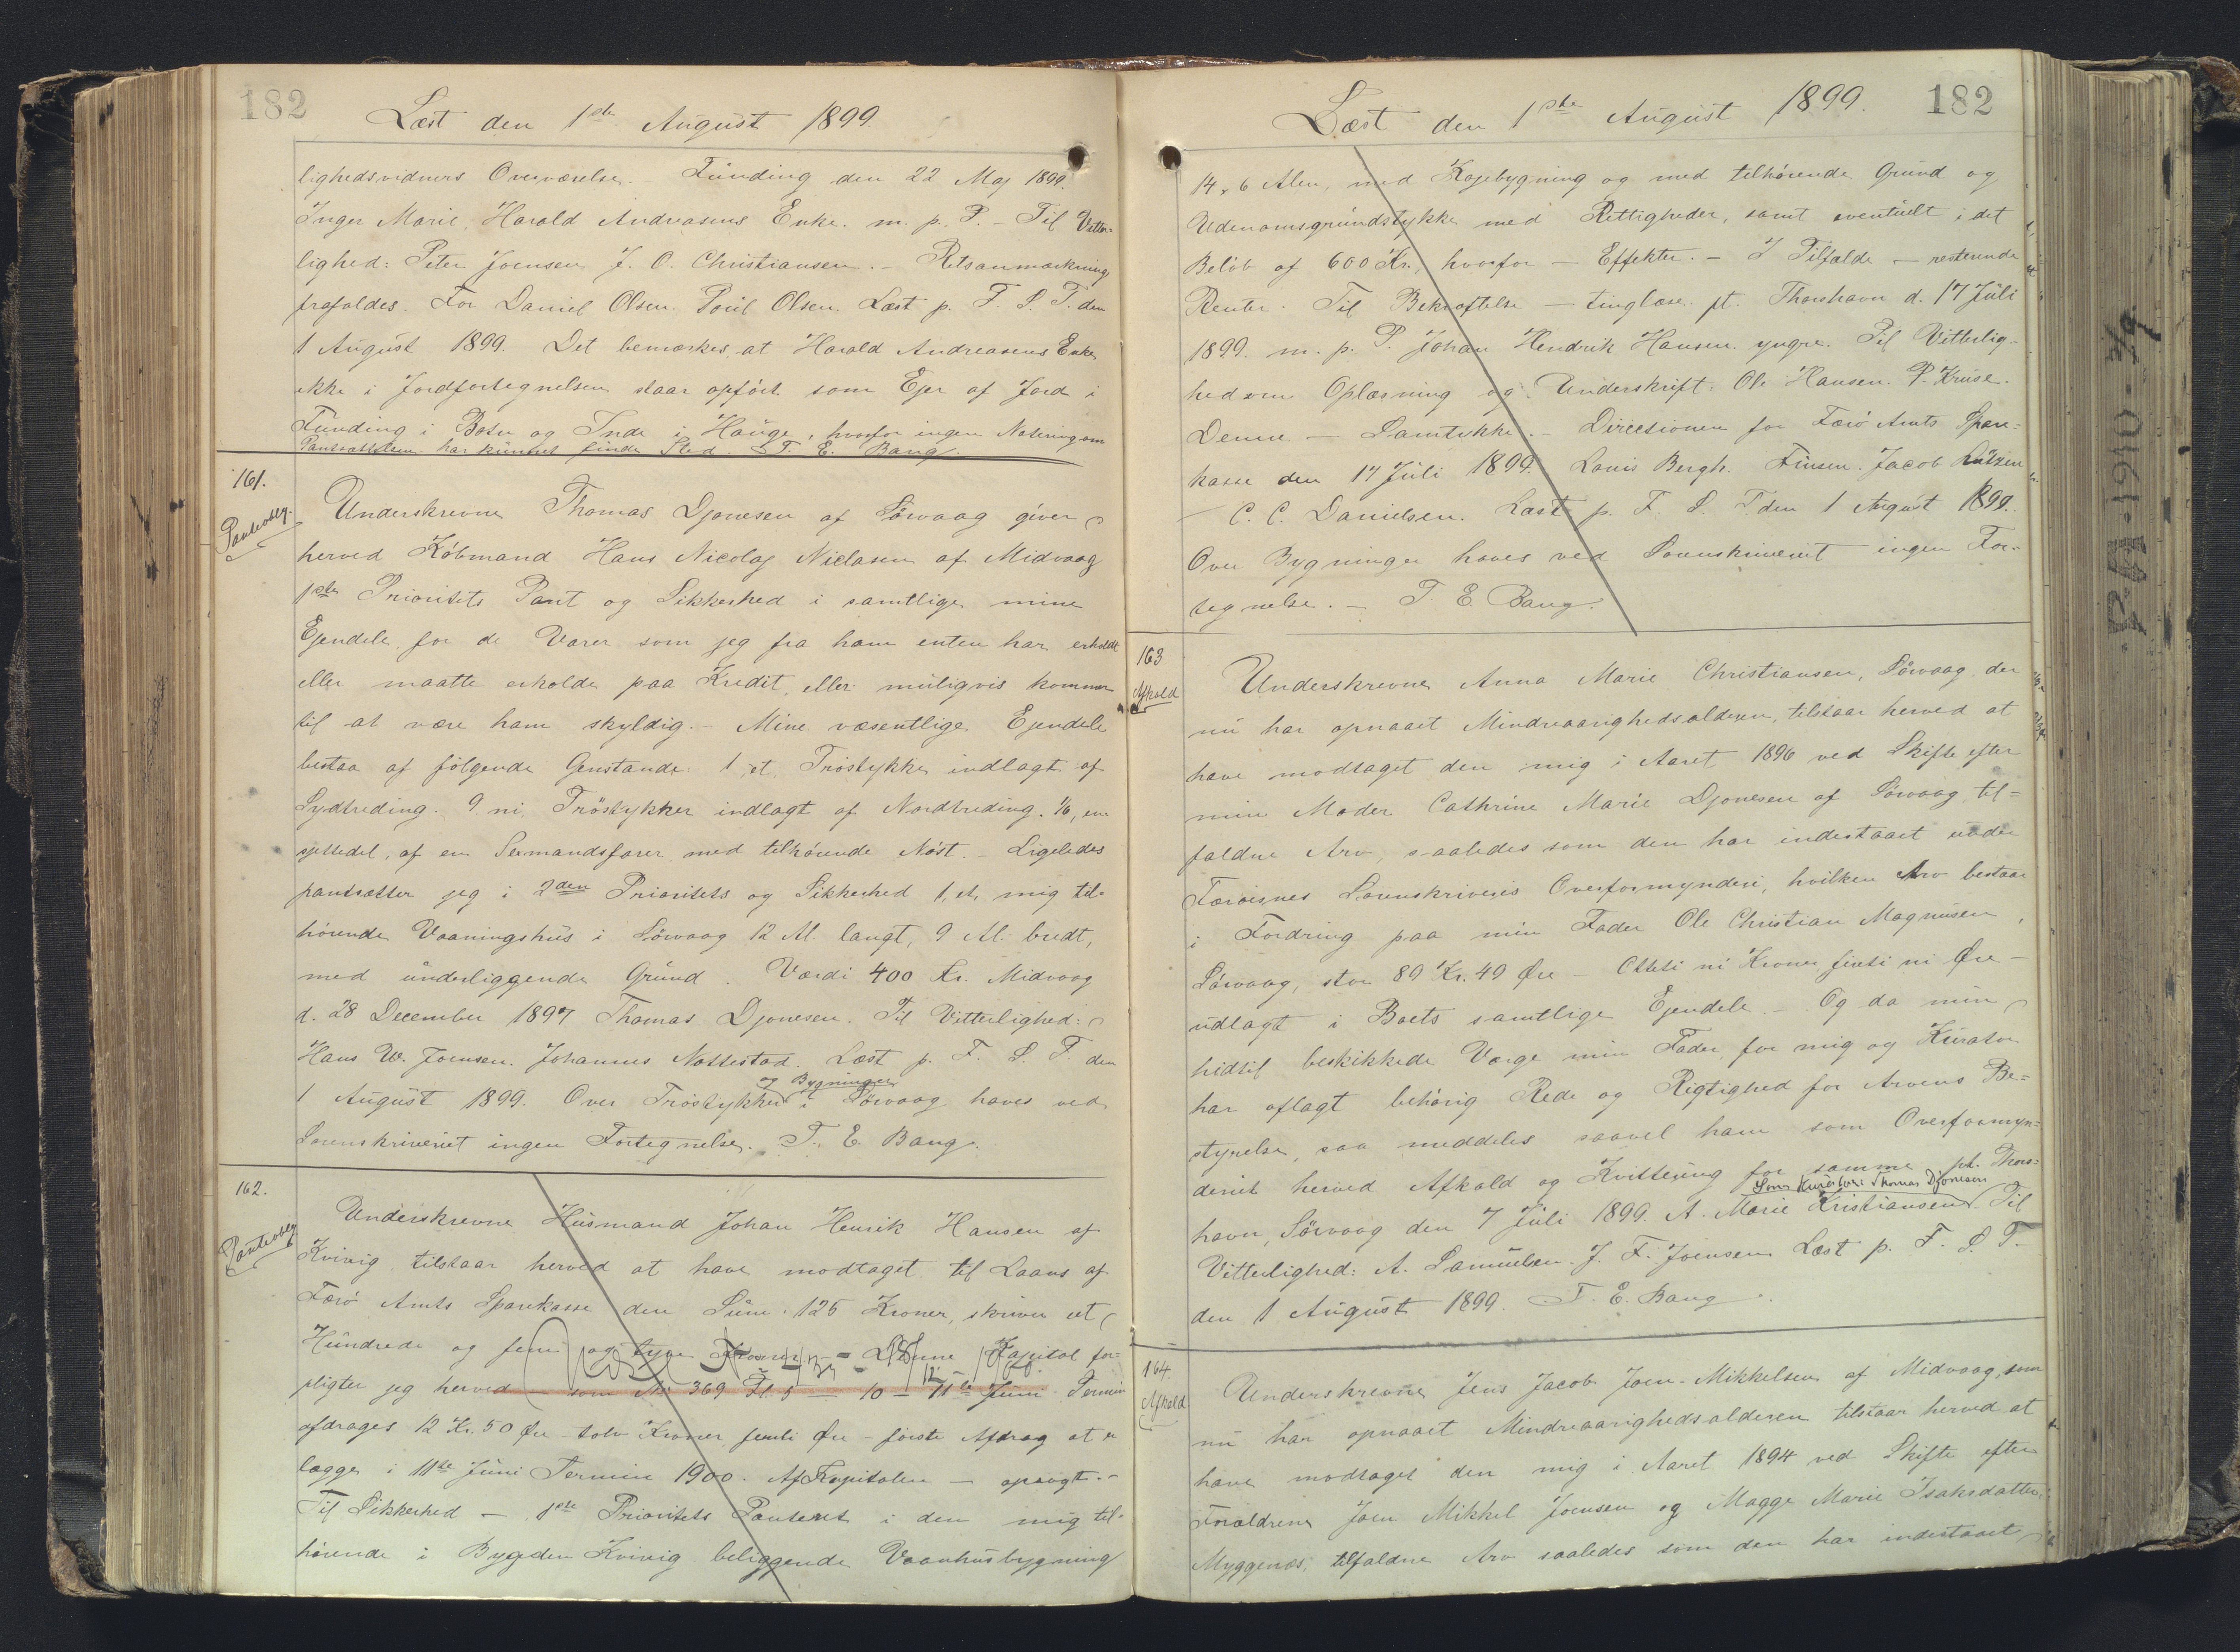 182
Læst den 1ste August 1899.
lighedsvidners Overværelse. - Funding den 22 Maj 1899.
Inger Marie, Harald Andreasens Enke. m. p. P. - Til Vitter-
lighed: Peter Joensen, J. O. Christiansen. - Retsanmærkning
frafaldes. For Daniel Olsen. Poul Olsen. Læst p. F. S. T. den
1 August 1899. Det bemærkes, at Harald Andreasens Enke
ikke i Jordfortegnelsen staar opført som Ejer af Jord i
Funding i Botn og Inde i Hauge, hvorfor ingen Notering om
Pantsættelsen har kunnet finde Sted. T. E. Bang.
161.
Panteobg.
Underskrevne Thomas Djonesen af Sörvaag giver
herved Købmand Hans Nicolaj Niclasen af Midvaag
1ste Prioritets Pant og Sikkerhed i samtlige mine
Ejendele, for de Varer som jeg fra ham enten har erholdt
eller maatte erholde paa Kredit, eller muligvis kommer
til at være ham skyldig. - Mine væsentlige Ejendele
bestaa af følgende Genstande: 1, et, Tröstykke indlagt af
Sydtreding. 9 ni, Tröstykker indlagt af Nordtreding. 1/6, en
sjettedel, af en Sexmandsfarer med tilhörende Nöst. - Ligeledes
pantsætter jeg i 2den Prioritets og Sikkerhed 1, et, mig til-
hörende Vaaningshus i Sörvaag 12 Al. langt, 9 Al. bredt,
med underliggende Grund. Værdi 400 Kr. Midvaag
d. 28 December 1897 Thomas Djonesen. Til Vitterlighed:
Hans W. Joensen. Johannes Nattestad. Læst p. F. S. T. den
og Bygninger
1 August 1899. Over Tröstykker i Sörvaag haves ved
Sorenskriveriet ingen Fortegnelse. T. E. Bang.
162.
Panteobg
Underskrevne Husmand Johan Henrik Hansen af
Kvivig tilstaar herved at have modtaget til Laans af
Færö Amts Sparekasse den Sum 125 Kroner, skriver et
Hundrede og fem og tyve Kroner - Denne Kapital for-
pligter jeg herved - som No 369 Fl. 5 - 10 - 11te Juni Termin
afdrages 12 Kr. 50 Øre - tolv Kroner femti Øre - første Afdrag at er
lægge i 11te Juni Termin 1900. Af Kapitalen - opsagt. -
Til Sikkerhed - 1ste Prioritets Panteret i den mig til-
hörende i Bygden Kvivig beliggende Vaanhusbygning
182
Læst den 1ste August 1899.
14 x 6 Alen, med Kojebygning og med tilhörende Grund og
Udenomsgrundstykke med Rettigheder, samt eventuelt i det
Beløb af 600 Kr., hvorfor - Effekter. - I Tilfælde - resterende
Renter. Til Bekræftelse - tinglæse. pt. Thorshavn d. 17 Juli
1899. m. p. P. Johan Hendrik Hansen yngre. Til Vitterlig-
hed om Oplæsning og Underskrift: Ole Hansen. P. Kruse.
Denne - Samtykke. - Directionen for Færö Amts Spare-
kasse den 17 Juli 1899. Louis Bergh. Finsen. Jacob Lützen
- C. C. Danielsen. Læst p. F. S. T. den 1 August 1899.
Over Bygninger haves ved Sorenskriveriet ingen For-
tegnelse. - T. E. Bang.
163
Afkald
Underskrevne Anna Marie Christiansen, Sörvaag, der
nu har opnaaet Mindreaarighedsalderen, tilstaar herved at
have modtaget den mig i Aaret 1896 ved Skifte efter
min Moder Cathrine Marie Djonesen af Sörvaag til-
faldne Arv, saaledes som den har indestaaet under
Færöernes Sorenskriveris Overformynderi, hvilken Arv bestaar
i Fordring paa min Fader Ole Christian Magnusen,
Sörvaag, stor 89 Kr. 49 Øre - Otteti ni Kroner firti ni Øre -
udlagt i Boets samtlige Ejendele. - Og da min
hidtil beskikkede Værge min Fader for mig og Kurator
har aflagt behörig Rede og Rigtighed for Arvens Be-
styrelse, saa meddeles saavel ham som Overformyn-
deriet herved Afkald og Kvittering for samme. pt. Thors-
Som Kurator: Thomas Djonesen
havn, Sörvaag den 7 Juli 1899. A. Marie Kristiansen. Til
Vitterlighed: A. Samuelsen. J. F. Joensen. Læst p. F. S. T.
den 1 August 1899. T. E. Bang.
164.
Afkald
Underskrevne Jens Jacob Joen-Mikkelsen af Midvaag, som
nu har opnaaet Mindreaarighedsalderen tilstaar herved at
have modtaget den mig i Aaret 1894 ved Skifte efter
Forældrene Joen Mikkel Joensen og Magge Marie Isaksdatter,
Myggenæs, tilfaldne Arv saaledes som den har indestaaet